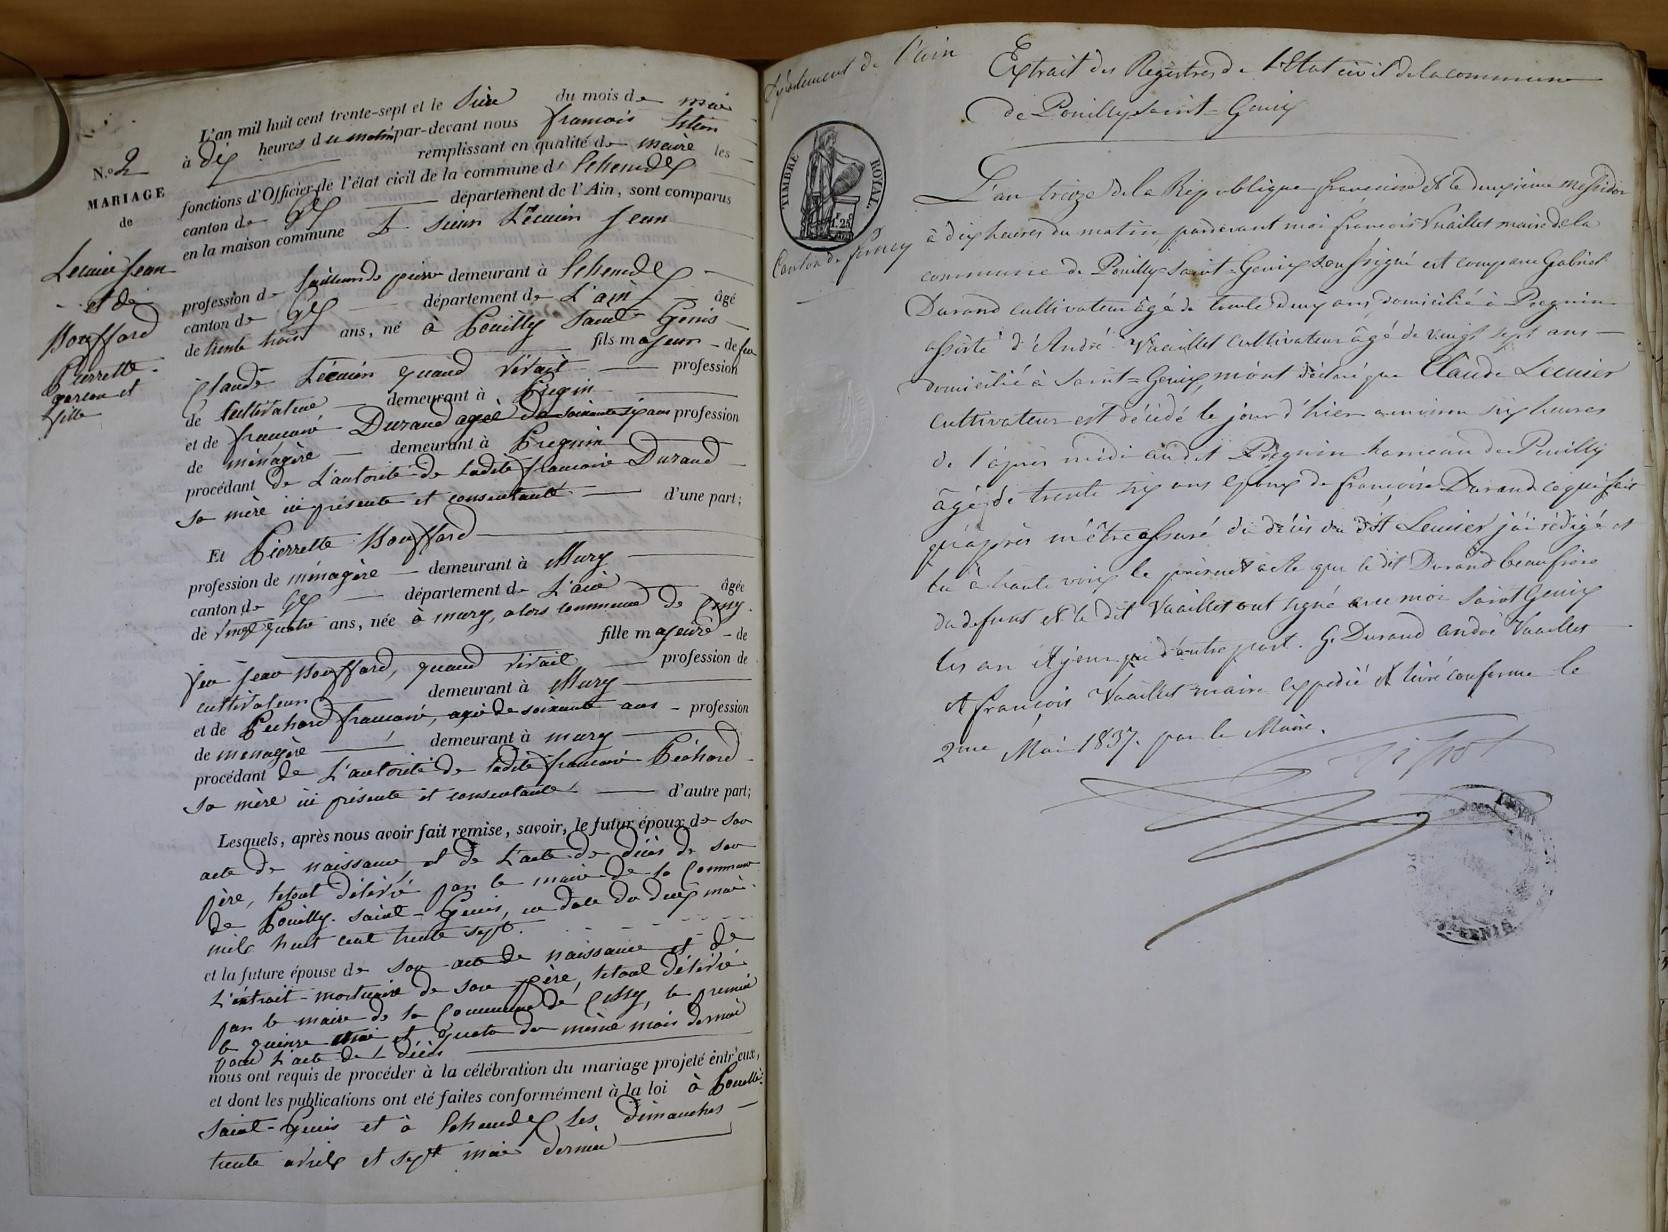 L'an mil huit cent trente-sept et le seize du mois de mai
à dix heures du matin par-devant nous françois
remplissant en qualité de maire les
fonctions d'Officier de l'état civil de la commune d'Echenevex
canton de Gex département de l'Ain, sont comparus
en la maison commune 1° sieur Lécuier Jean
N.º 2
MARIAGE
de
Lecuier Jean
et de
Bouffard
Pierrette
garçon et
fille
profession de demeurant à Echenevex
canton de Gex département de L'ain âgé
de trente trois ans, né à Pouilly Saint-Genis
fils majeur de feu
Claude Lécuier quand vivait profession
de cultivateur demeurant à Pregnin
et de françoise Durand agée de soixante six ans profession
de ménagère demeurant à Pregnin
procédant de L'autorité de ladite françoise Durand
sa mère ici présente et consentante d'une part;
Et Pierrette Bouffard
profession de ménagère demeurant à Mury
canton de Gex département de L'ain âgée
de vingt quatre ans, née à mury, alors commune de Crosy
fille majeure de
feu Jean Bouffard, quand vivait profession de
cultivateur demeurant à Mury
et de Pechard françoise, agée de soixante ans profession
de menagère demeurant à mury
procédant de L'autorité de ladite françoise Péchard
sa mère ici présente et consentante d'autre part;
Lesquels, après nous avoir fait remise, savoir, le futur époux de son
acte de naissance, et de L'acte de décès de son
père, letout délivré par le maire de la Commune
de Pouilly-saint-Genis, en date du deux mai
mil huit cent trente sept.
et la future épouse de son acte de naissance et de
L'extrait-mortuaire de son père, letout délivré
par le maire de la Commune de Cessy, le premier
le quinze mai et quatre du même mois dernier
pour L'acte de décès
nous ont requis de procéder à la célébration du mariage projeté entr'eux,
et dont les publications ont eté faites conformément à la loi à Pouilly
saint-Genis et à Echenevex les dimanches
trente avril et sept mai dernier
Département de l'ain
TIMBRE ROYAL
Canton de ferney
Extrait des Registres de l'Etat civil de la commune
de Pouilly saint-Genix
L'an treize de la République française et le deuxième messidor
à dix heures du matin, pardevant moi françois Vuaillet maire de la
commune de Pouilly saint-Genix soussigné est comparu Gabriel
Durand cultivateur âgé de trente deux ans, domicilié à Pregnin
assisté d'André Vuaillet cultivateur âgé de vingt sept ans
domicilié à Saint=Genix, m'ont déclaré que Claude Lecuier
cultivateur est décédé le jour d'hier environ six heures
de l'après midi au dit Prégnin hameau de Pouilly
âgé de trente six ans époux de françoise Durand ce qui fait
qu'après m'être assuré du décès du dit Lecuier j'ai rédigé et
lu à haute voix le présent acte que le dit Durand beaufrère
du defunt et le dit Vuaillet ont signé avec moi Saint Genix
les an et jour que d'autre part. G. Durand André Vuaillet
et françois Vuaillet maire expédié et livré conforme le
2me Mai 1837. par le Maire.
ST GENIS